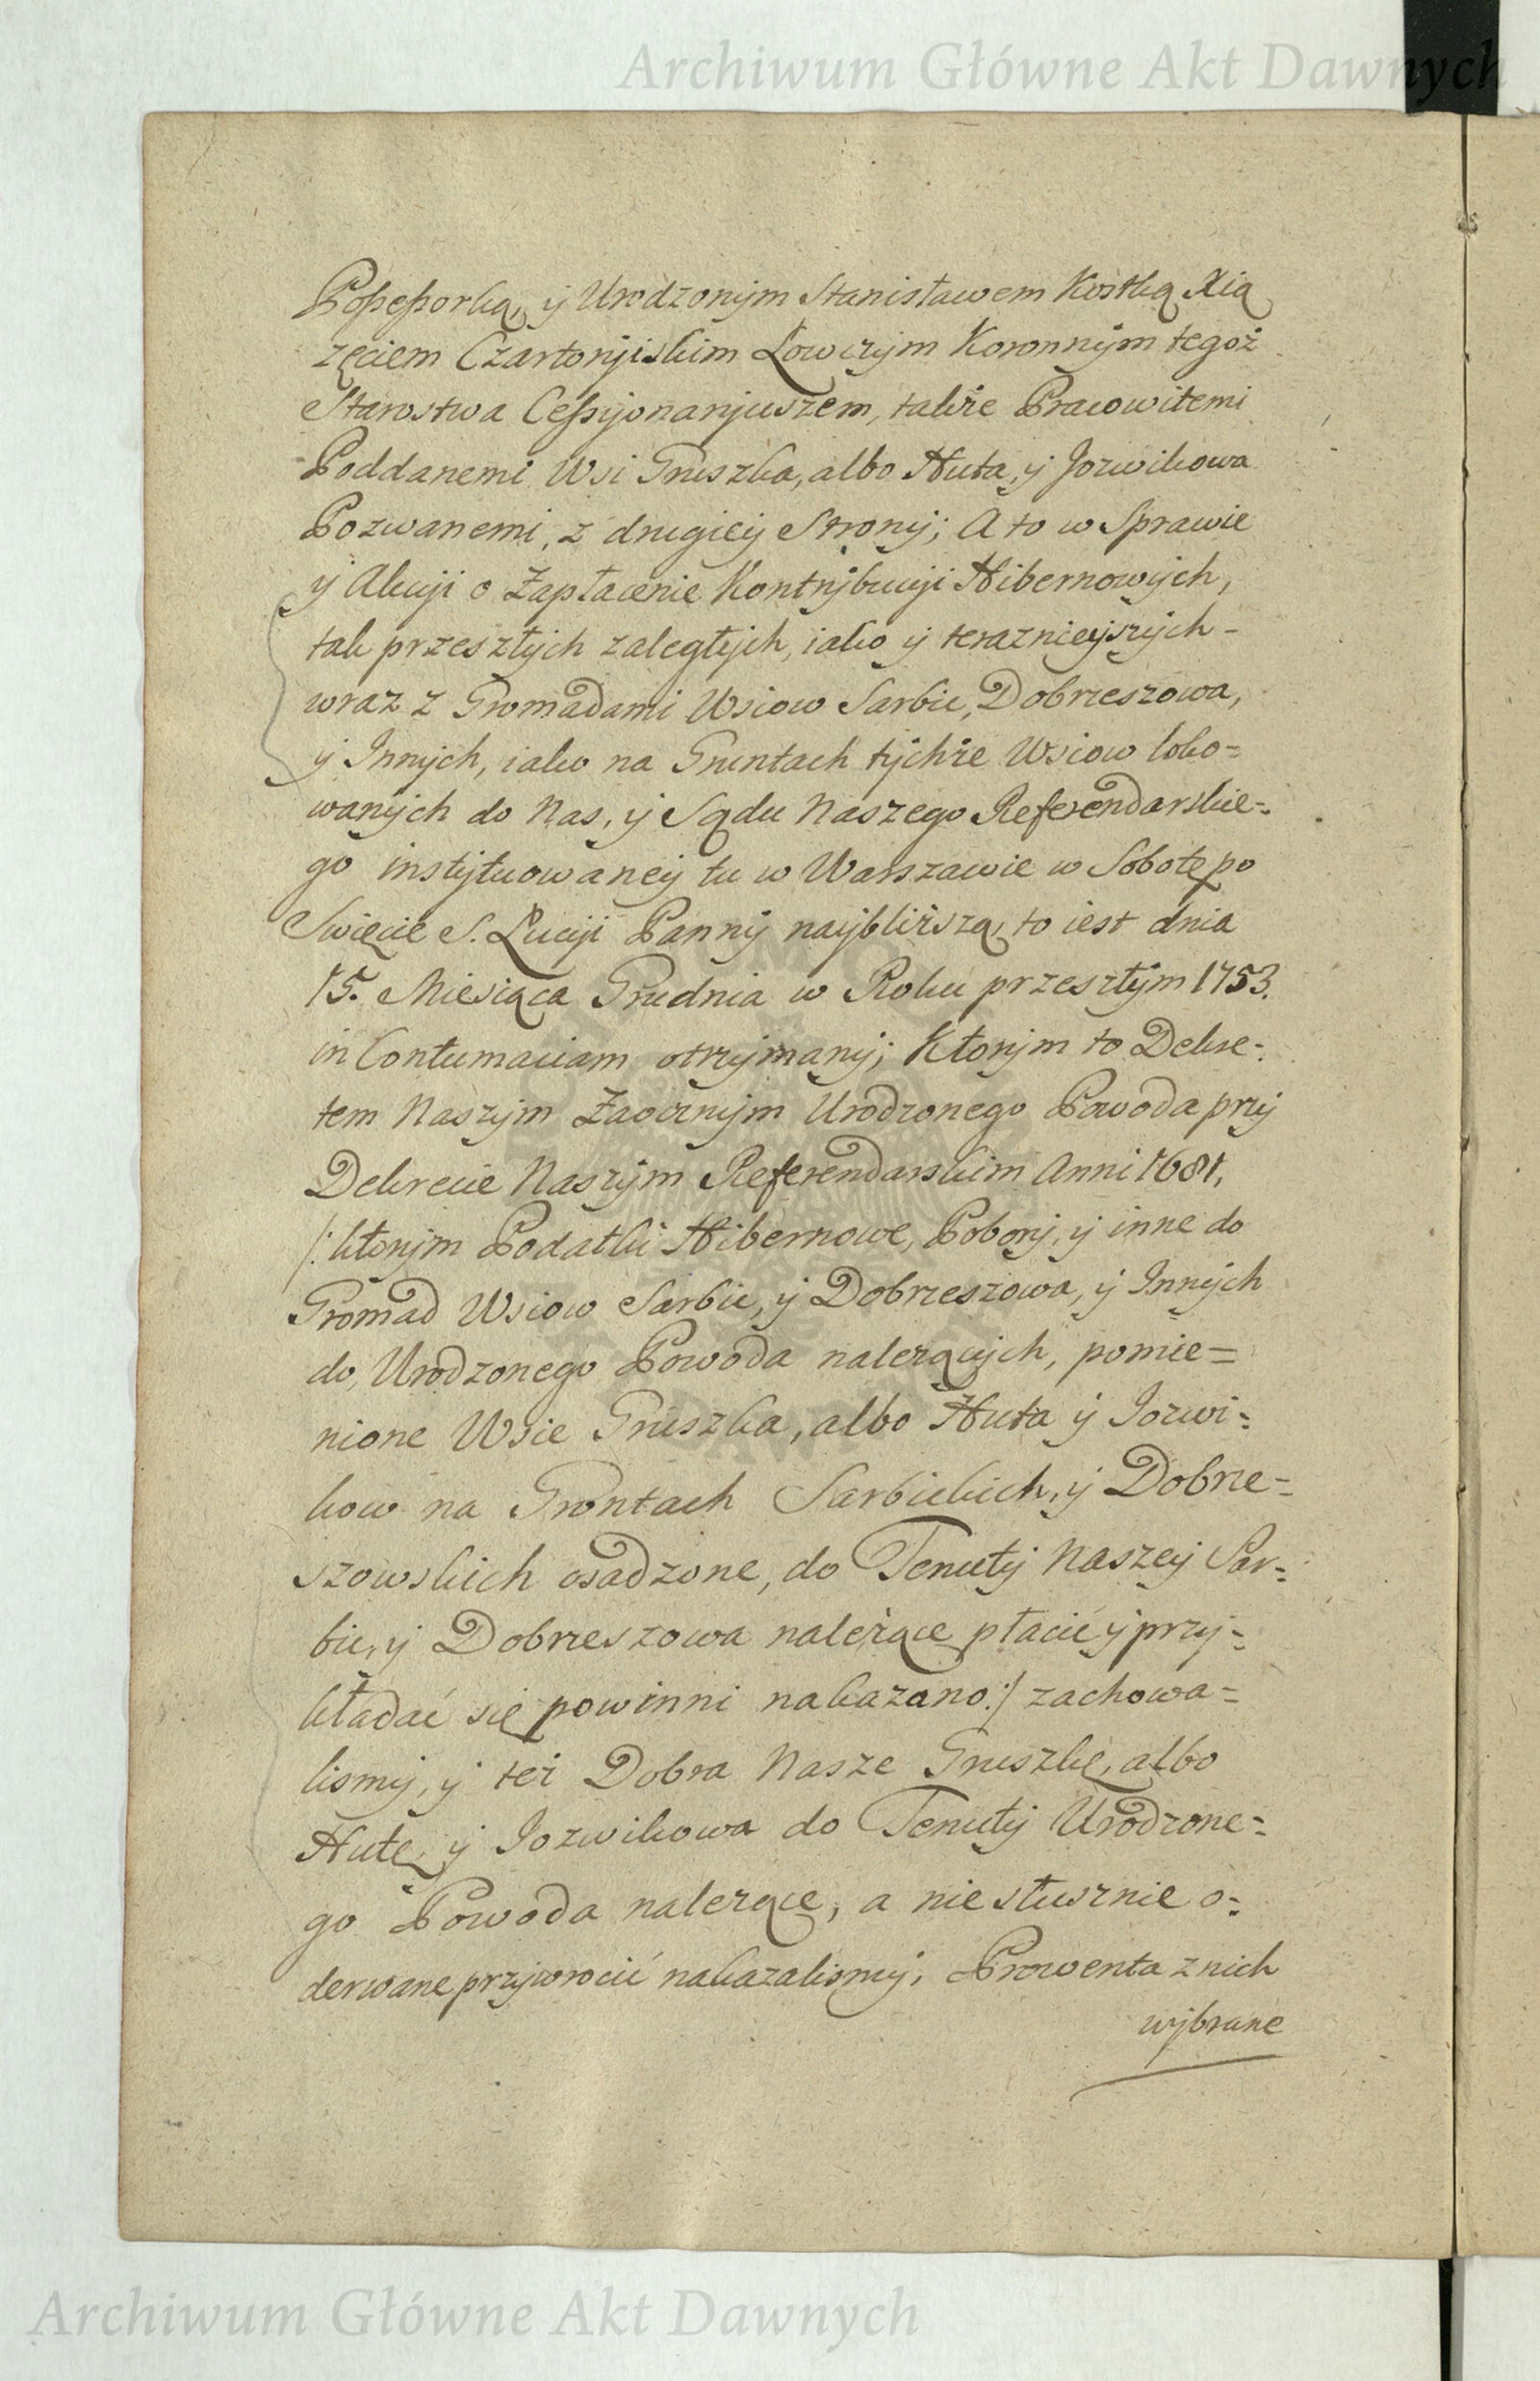 Archiwum Główne Akt Dawnych
Poßeßorką, ÿ Urodzonÿm Stanisławem Kostką Xią
zęciem Czartorÿiskim Łowczÿm Koronnÿm tegoż
Starostwa Ceßÿonarÿuszem, także Pracowitemi
Poddanemi Wsi Gruszka, albo Huta, ÿ Jozwikowa
Pozwanemi, z drugieÿ Stronÿ; A to w Sprawie
ÿ Akcÿi o Zapłacenie Kontrÿbucÿi Hibernowÿch,
tak przeszłÿch zaległÿch, iako ÿ terazniejszÿch -
wraz z Gromadami Wsiow Sarbic, Dobrzeszowa,
ÿ Innÿch, iako na Gruntach tÿchże Wsiow loko=
wanÿch do Nas, ÿ Sądu Naszego Referendarskie=
go instÿtuowaneÿ tu w Warszawie w Sobotę po
Swięcie S. Lucÿi Pannÿ naÿbliższą, to iest dnia
15. Miesiąca Grudnia w Roku przeszłÿm 1753.
in Contumaciam otrzÿmanÿ; Ktorÿm to Dekre=
tem Naszÿm Zaocznÿm Urodzonego Powoda przÿ
Dekrecie Naszÿm Referendarskim Anni 1681,
/: ktorÿm Podatki Hibernowe, Poborÿ, ÿ inne do
Gromad Wsiow Sarbic, ÿ Dobrzeszowa, ÿ Innÿch
do Urodzonego Powoda należącÿch, pomie=
nione Wsie Gruszka, albo Huta ÿ Jozwi=
kow na Grontach Sarbickich, ÿ Dobrze=
szowskich osadzone, do Tenutÿ Naszeÿ Sar=
bic, ÿ Dobrzeszowa należące płacić ÿ przÿ=
kładać się powinni nakazano :/ zachowa=
lismÿ, ÿ też Dobra Nasze Gruszkę, albo
Hutę, ÿ Jozwikowa do Tenutÿ Urodzone=
go Powoda należące, a niesłusznie o=
derwane przÿwrocić nakazalismÿ, Prowenta z nich
wÿbrane
Archiwum Główne Akt Dawnych